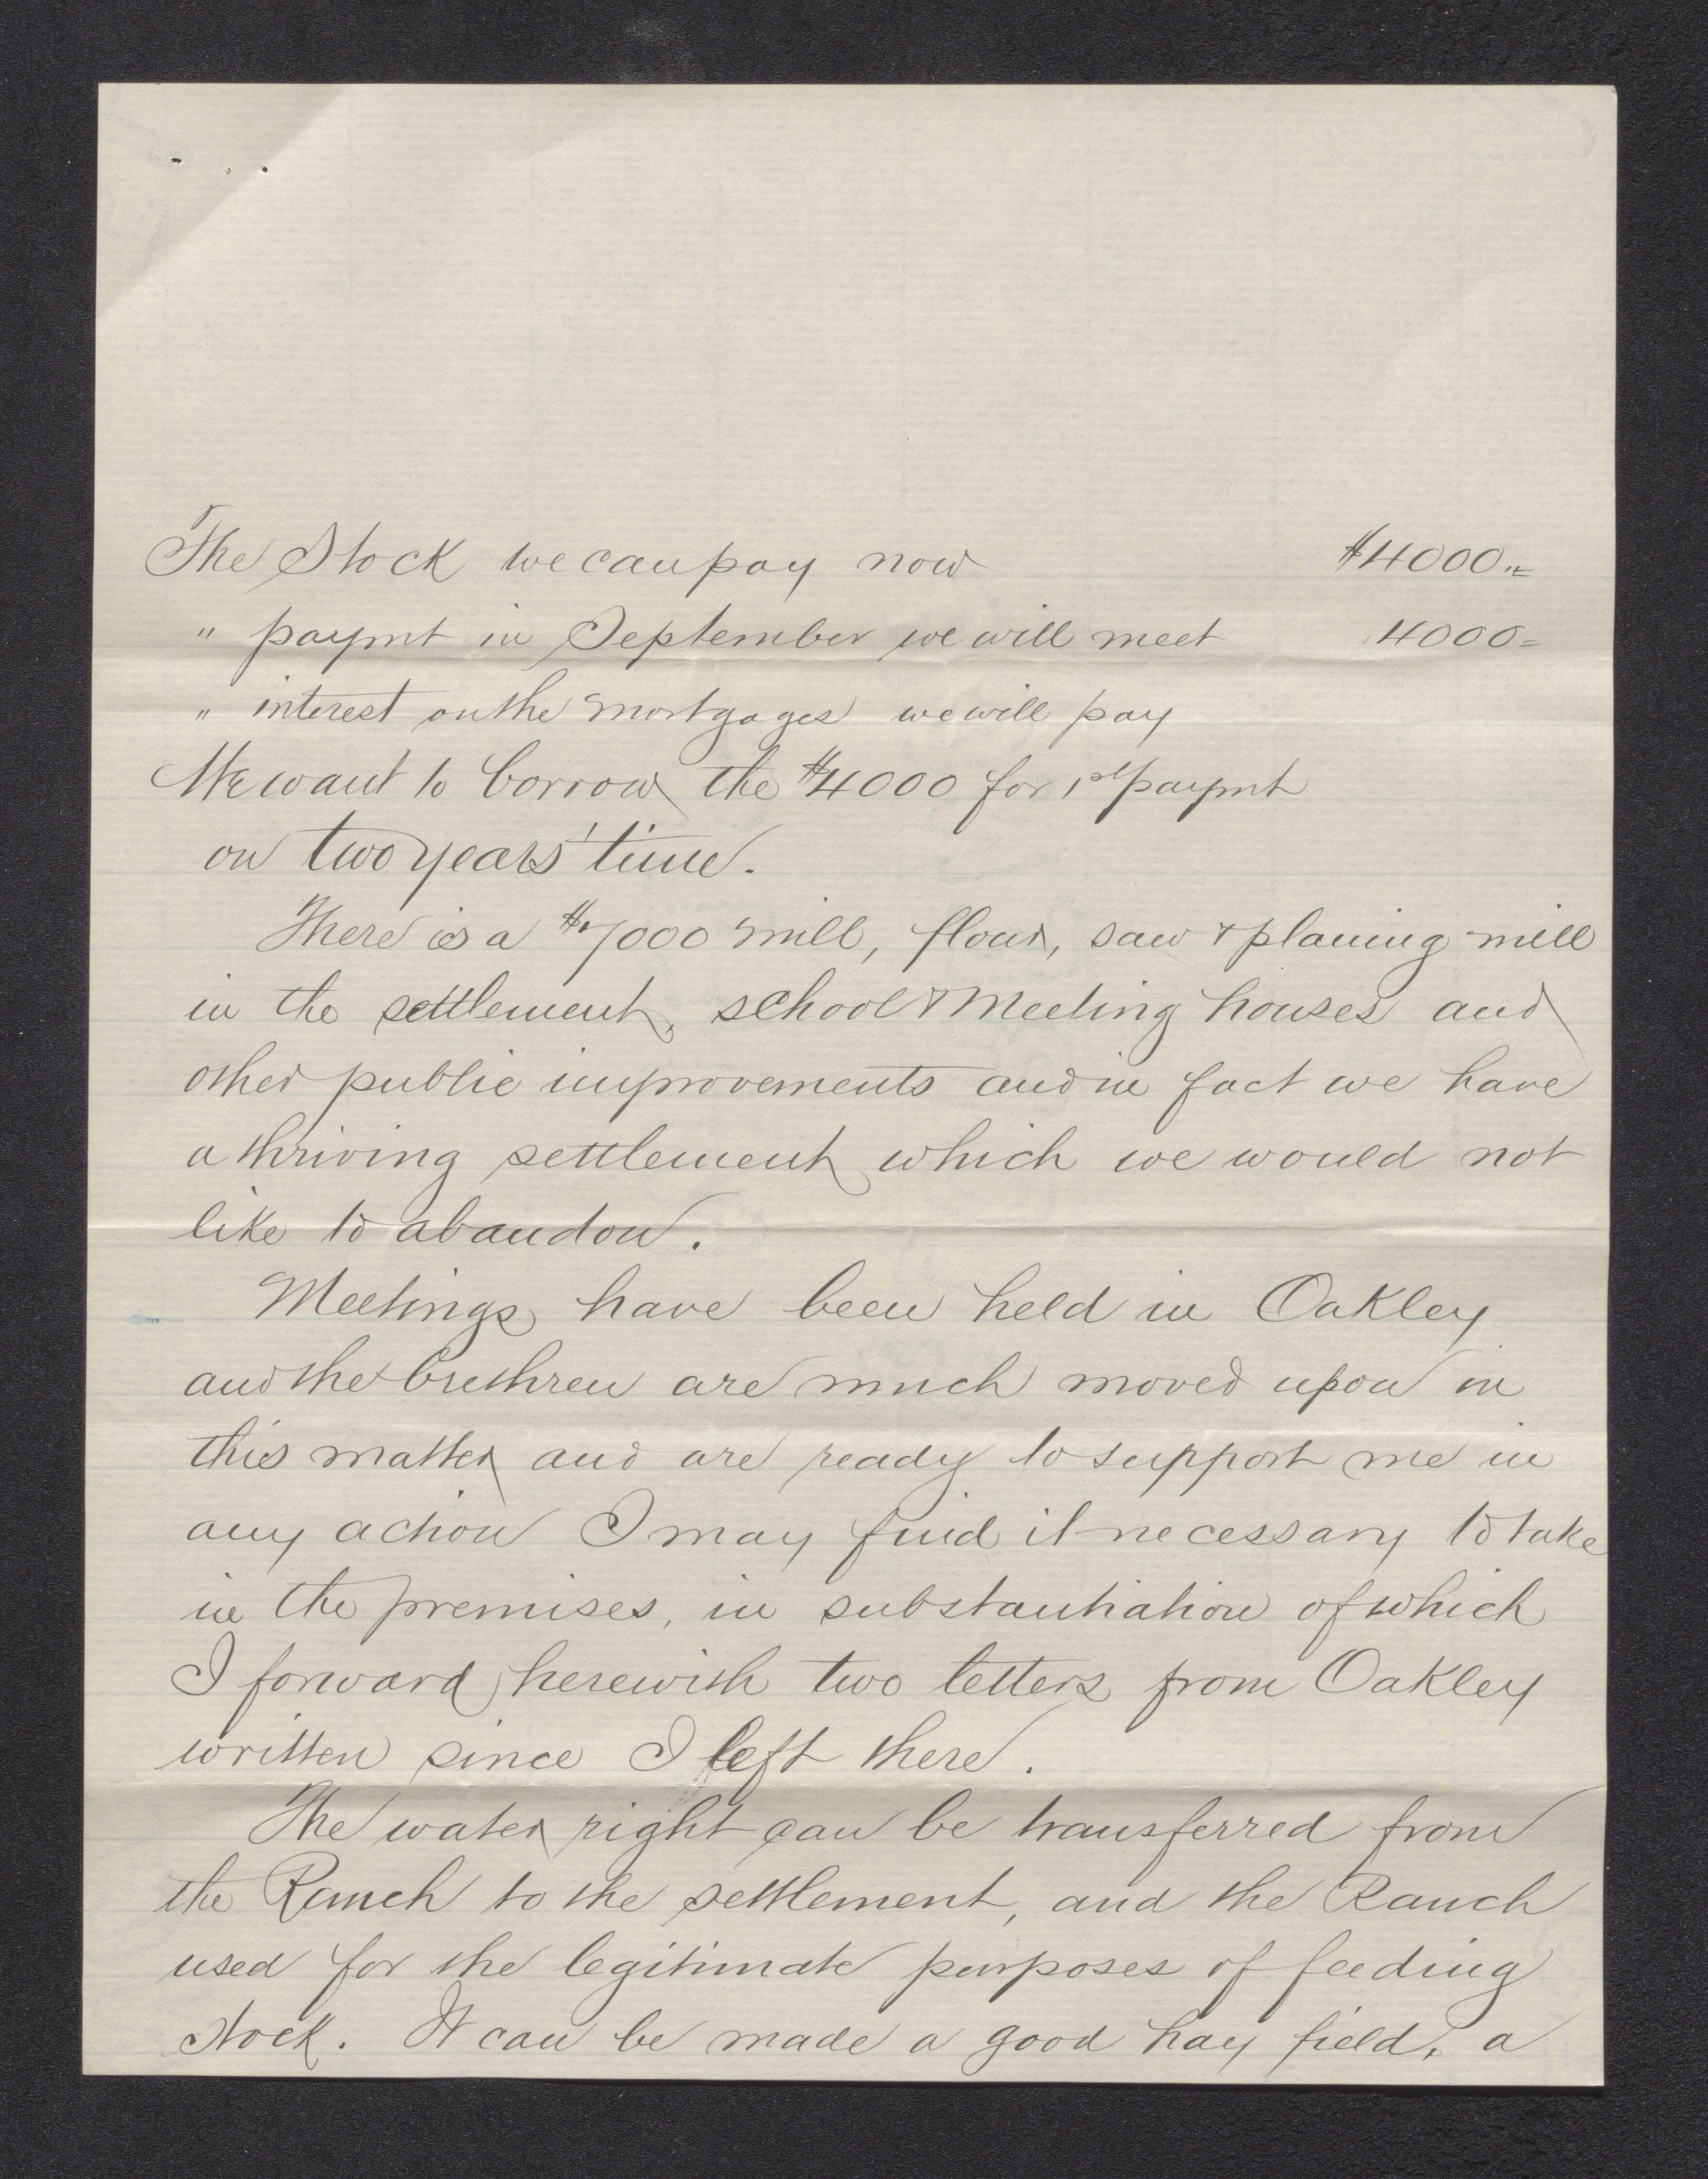 The Stock we can pay now $4000.=
" paymt in September we will meet 4000=
" interest on the mortgages we will pay
We want to borrow the $4000 for 1st paymt
on two years' time.
There is a $7000 mill, flour, saw & planing mill
in the settlement, school & Meeting houses and
other public improvements and in fact we have
a thriving settlement which we would not
like to abandon.
Meetings have been held in Oakley
and the brethren are much moved upon in
this matter and are ready to support me in
any action I may find it necessary to take
in the premises, in substantiation of which
I forward herewith two letters from Oakley
written since I left there.
The water right can be transferred from
the Ranch to the settlement, and the Ranch
used for the legitimate purposes of feeding
stock. It can be made a good hay field, a